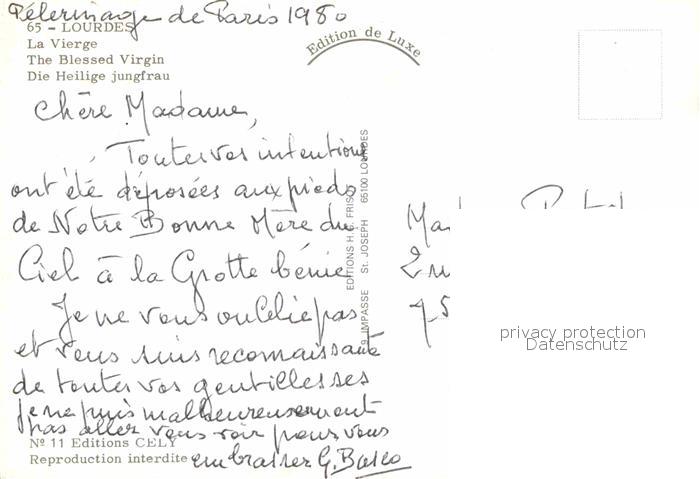 Pélerinage de Paris 1980
65 - LOURDES
La Vierge
The Blessed Virgin
Die Heilige jungfrau
Edition de Luxe
Chère Madame,
Toutes vos intentions
ont été déposées aux pieds
de Notre Bonne Mère du
Ciel à la Grotte bénie
Je ne vous oublie pas
et vous suis reconnaissante
de toutes vos gentillesses
Je ne puis malheureusement
pas aller vous voir pour vous
embrasser G. Bosco
Nº 11 Editions CELY
Reproduction interdite
EDITIONS H.
9, IMPASSE St. JOSEPH 65100 LOURDES
75
privacy protection
Datenschutz